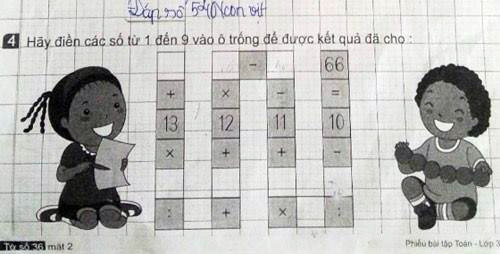 Đáp số 540 con vịt
4 Hãy điền các số từ 1 đến 9 vào ô trống để được kết quả đã cho :
- 66
+ × - =
13 12 11 10
× + + -
: + × :
Tờ số 36 mặt 2
Phiếu bài tập Toán - Lớp 3